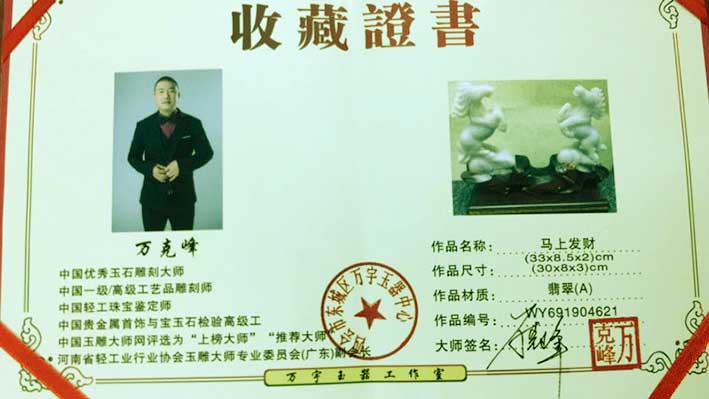 收藏證書
万克峰
中国优秀玉石雕刻大师
中国一级/高级工艺品雕刻师
中国轻工珠宝鉴定师
中国贵金属首饰与宝玉石检验高级工
中国玉雕大师网评选为“上榜大师”“推荐大师”
河南省轻工业行业协会玉雕大师专业委员会(广东)副会长
四会市东城区万宇玉器中心
作品名称: 马上发财
作品尺寸: (33x8.5x2)cm
(30x8x3)cm
作品材质: 翡翠(A)
作品编号: WY691904621
大师签名: 万克峰
万克峰
万宇玉器工作室